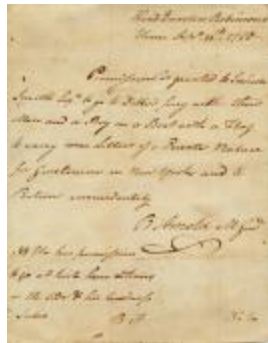 Head Quarters Robinsons
House Sepr 1780
Permission is granted to Joshua
Smith Esqr to go to Dobbs's Ferry with three
Men and a Boy in a Boat with a Flag
to carry some Letters of a Private Nature
for Gentlemen in New York and to
Return immediately
B Arnold M Genl
NB He has permission
to go at such hours
as the and his business
Suits B A